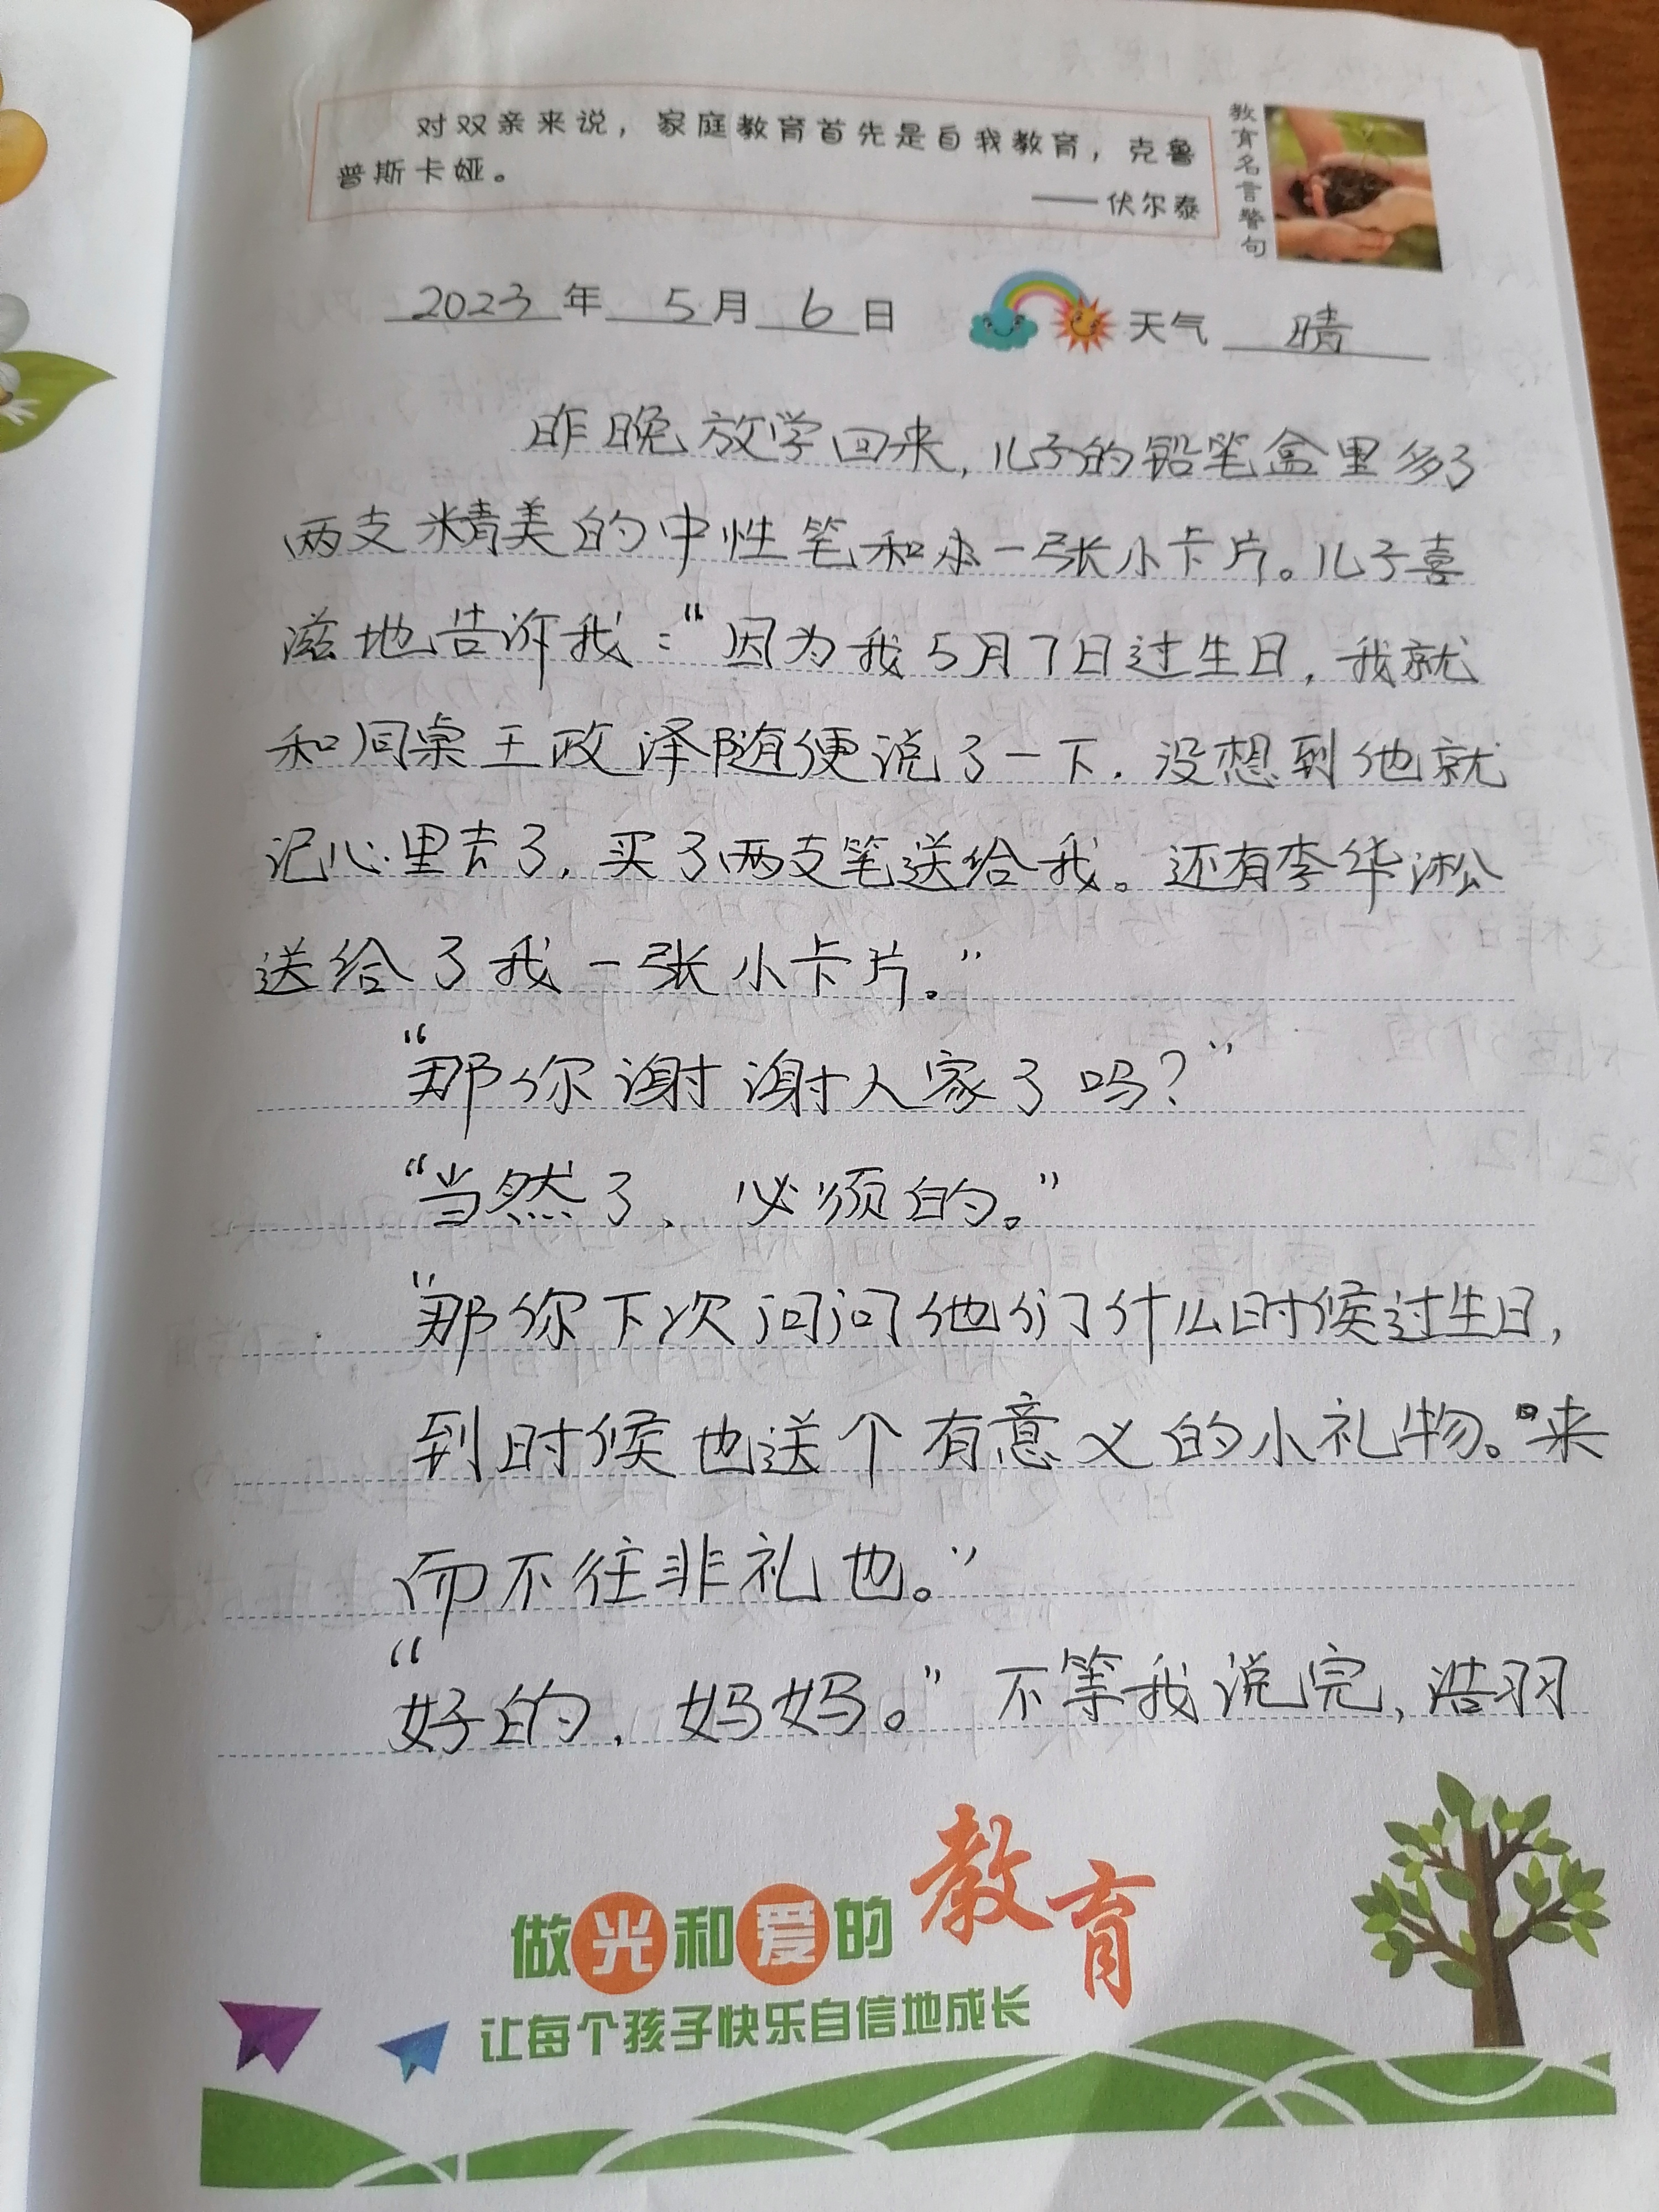 对双亲来说，家庭教育首先是自我教育，克鲁
普斯卡娅。
——伏尔泰
教育名言警句
2023年 5月 6日 天气 晴
昨晚放学回来，儿子的铅笔盒里多了
两支精美的中性笔和一张小卡片。儿子喜
滋地告诉我："因为我5月7日过生日，我就
和同桌王政泽随便说了一下，没想到他就
记心里去了，买了两支笔送给我。还有李华淞
送给了我一张小卡片。"
"那你谢谢人家了吗？"
"当然了、必须的。"
"那你下次问问他们什么时候过生日，
到时候也送个有意义的小礼物。来
而不往非礼也。"
"好的，妈妈。"不等我说完，浩羽
做光和爱的教育
让每个孩子快乐自信地成长